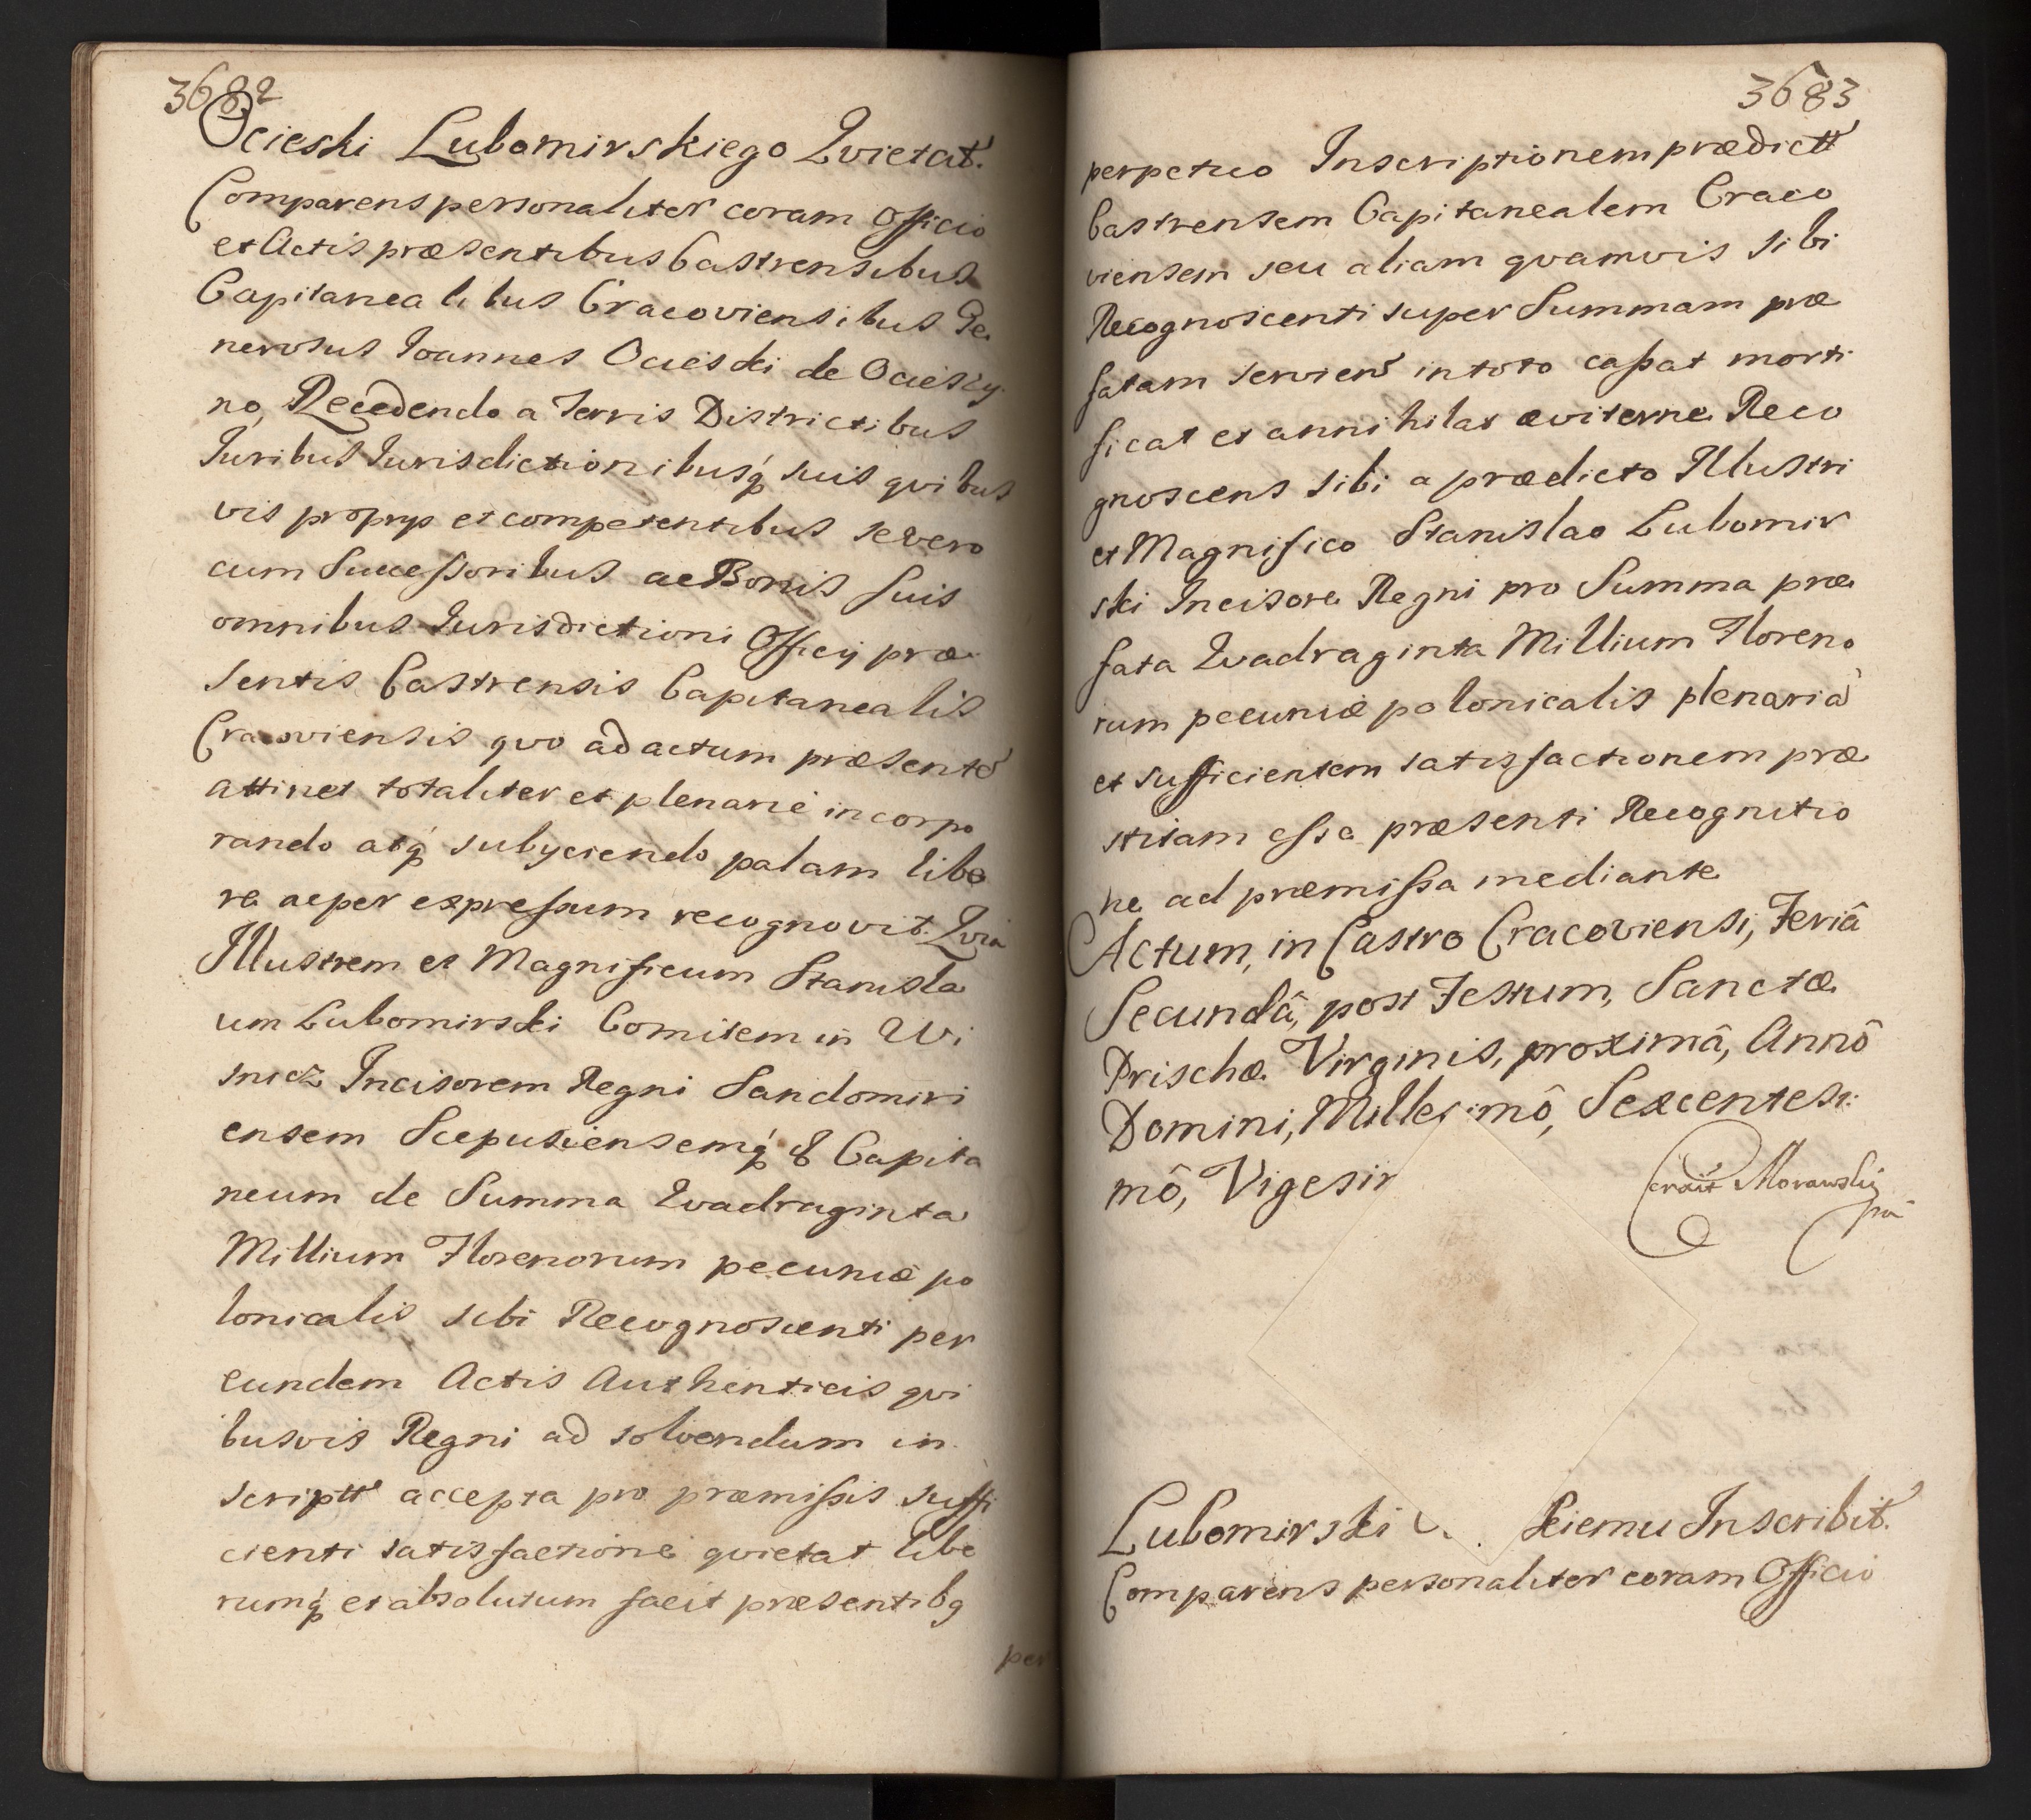 3682
Ocieski Lubomirskiego Qvietat.
Comparens personaliter coram Officio
et Actis præsentibus Castrensibus
Capitanealibus Cracoviensibus Ge
nerosus Joannes Ocieski de Ocieszy
no, Recedendo a Terris Districtibus
Juribus Jurisdictionibusq́ suis qvibus
vis proprys et competentibus se vero
cum Successoribus ac Bonis suis
omnibus Jurisdictioni Officij præ
sentis Castrensis Capitanealis
Cracoviensis qvo ad actum præsente
attinet totaliter et plenarie incorpo
rando atq́ subyciendo palam libe
re ac per expressum recognovit. Qvia
Illustrem et Magnificum Stanisla
um Lubomirski Comitem in Wi
snicz Incisorem Regni Sandomiri
ensem Scepusiensemq́ & Capita
neum de Summa Qvadraginta
Millium Florenorum pecuniæ po
lonicalis sibi Recognoscenti per
eundem Actis Authenticis qvi
busvis Regni ad solvendum in
scriptt accepta pro præmissis suffi
cienti satisfactione qvietat libe
rumq́ et absolutum facit præsentibq
per
3683
perpetuo Inscriptionem prædictt
Castrensem Capitanealem Craco
viensem seu aliam qvamvis sibi
Recognoscenti super Summam præ
fatam servien in toto cassat morti
ficat et annihilat æviterne Reco
gnoscens sibi a prædicto Illustri
et Magnifico Stanislao Lubomir
ski Incisore Regni pro Summa præ
fata Qvadraginta Millium Floreno
rum pecuniæ polonicalis plenaria
et sufficientem satisfactionem præ
stitam esse præsenti Recognitio
ne ad præmissa mediante
Actum, in Castro Cracoviensi, Feriâ
Secundâ, post Festum, Sanctæ
Prischæ Virginis, proximâ, Annô
Domini, Millesimô, Sexcentesi
mô, Vigesi
Morawsky
Lubomirski kiemu Inscribit.
Comparens personaliter coram Officio